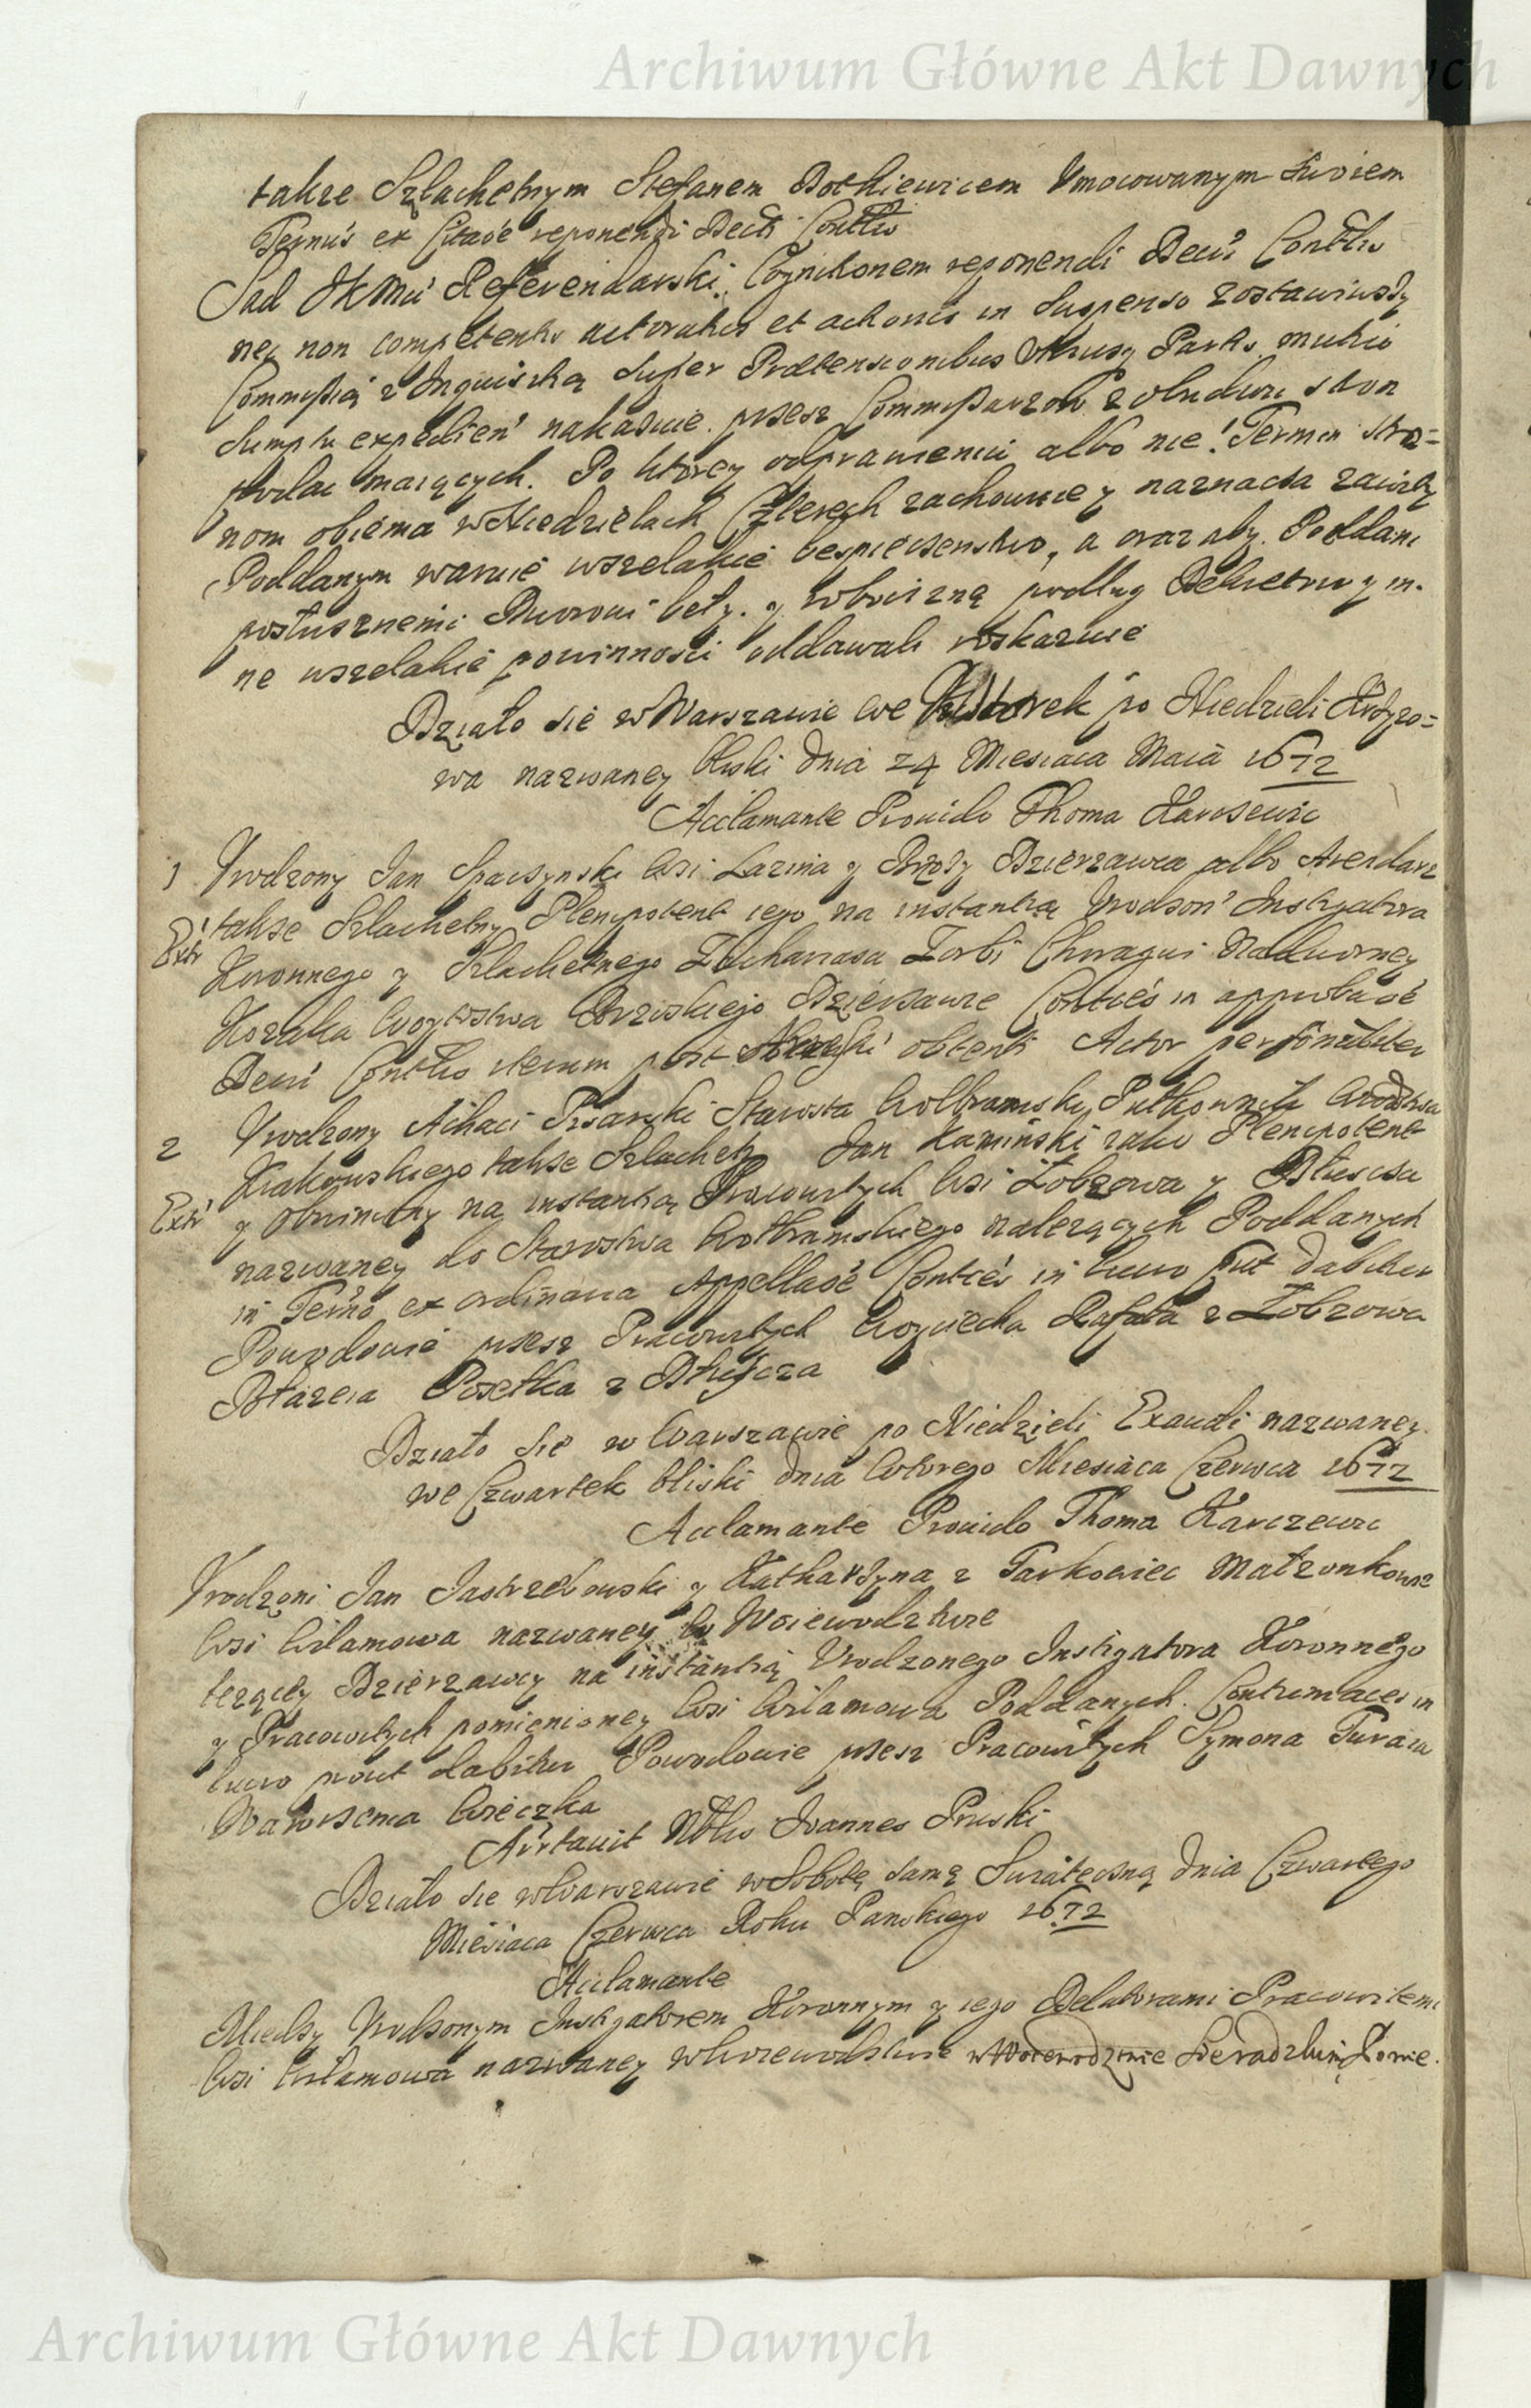 Archiwum Główne Akt Dawnych
takze Szlachetnym Stefanem Umocowanym
Termis ex reponendi Decti Conttis
Sąd JKMci Referendarski Cognitionem reponendi Decti Conttis
ney non competentis actoratus et actionis in suspenso zostawiwszy
Commissią z Inquisitią super Praetensionibus Partis mutuo
sumptu expedien nakazuie przez Commissarzow z obudwu stron
podac maiących. Po ktorey odprawieniu albo nie! Termin stro=
nom obiema w Niedzielach Czterech zachowuie y naznacza zawity
Poddanym waruie wszelakie bespieczenstwo, a oraz aby Poddani
posłusznemi Dworowi beły y robociznę podług Dekretow y in=
ne wszelakie powinnosci oddawali roskazuie
Działo sie w Warszawie we Wtorek po Niedzieli Krzyzo=
wa nazwaney bliski dnia 24 Miesiaca Maia 1672
Acclamante Prouido Thoma Karcsewic
1 Vrodzony Jan wsi Lazina y Dzierzawca albo Arendarz
Extr takze Szlachetny Plenipotent iego na instantią Vrodzon Instygatora
Koronnego y Szlachetnego Zachariasza Choragwi Nadworney
Kozaka Woytostwa Dzierzawce Conttes in approbaoe
Decti Conttis iterum post obtenti Actor personaliter
2 Vrodzony Achaci Pisarski Starosta Wolbramski Pułkownik Wodztwa
Krakowskiego takze Szlachetny Jan Kamiński iako Plenipotent
Extr y Obwiniony na instantią Pracowitych wsi Łobzowa y
nazwaney do Starostwa Wolbramskiego nalezących Poddanych
in Termo ex ordinaria Appellaoe Conttes in lucro put dabitur
Powodowie przez Pracowitych Woyciecha Rafała z Łobzowa
Błazeia Posełka z
Działo sie w Warszawie po Niedzieli Exaudi nazwaney
we Czwartek bliski dnia wtorego Miesiąca Czerwca 1672
Acclamante Prouido Thoma Karczewic
Vrodzoni Jan Jastrzebowski y Katharzyna z Tarkowiec Małzonkowie
wsi Wilamowa nazwaney w Woiewodztwie
lezącey Dzierzawcy na instantią Vrodzonego Instigatora Koronnego
y Pracowitych pomienioney wsi Wilamowa Poddanych. Contumaces in
lucro prout dabitur Powodowie przez Pracowitych Symona Turaia
Wawrzenca Wieczka
Attentauit Nblis Ioannes Pruski
Działo sie w Warszawie w Sobotę samą Swiąteczną dnia Czwartego
Miesiaca Czerwca Roku Panskiego 1672
Acclamante
Miedzy Vrodzonym Instygatorem Koronnym y iego Delatorami Pracowitemi
wsi Wilamowa nazwaney w Woiewodztwie w Woiewodztwie Sieradzkim
Archiwum Główne Akt Dawnych